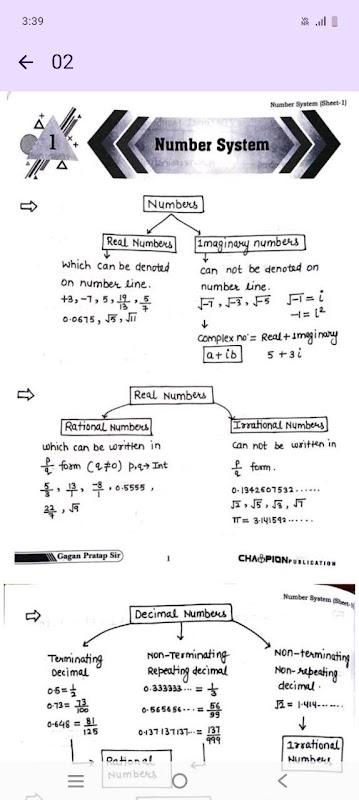 3:39
← 02
Number System (Sheet-1)
1
Number System
Numbers
Real Numbers
Imaginary numbers
Which can be denoted
on number line.
+3, -7, 5, 19/13, 5/7
0.0675, √5, √11
can not be denoted on
number line.
√-7, √-3, √-5
√-1 = i
-1 = i²
Complex no = Real + Imaginary
a + ib
5 + 3i
Real Numbers
Rational Numbers
which can be written in
p/q form (q≠0) p,q → Int
5/3, 13/1, -8/1, 0.5555,
22/7, √9
Irrational Numbers
Can not be written in
p/q form.
0.1342607532......
√2, √5, √3, √7
π = 3.141592......
Gagan Pratap Sir
1
CHAMPION PUBLICATION
Number System (Sheet-1)
Decimal Numbers
Terminating
Decimal
0.5 = 1/2
0.73 = 73/100
0.648 = 81/125
Non-Terminating
Repeating decimal
0.333333... = 1/3
0.565656... = 56/99
0.137137137... = 137/999
Non-terminating
Non-repeating
decimal.
√2 = 1.414.......
Rational
Numbers
Irrational
Numbers